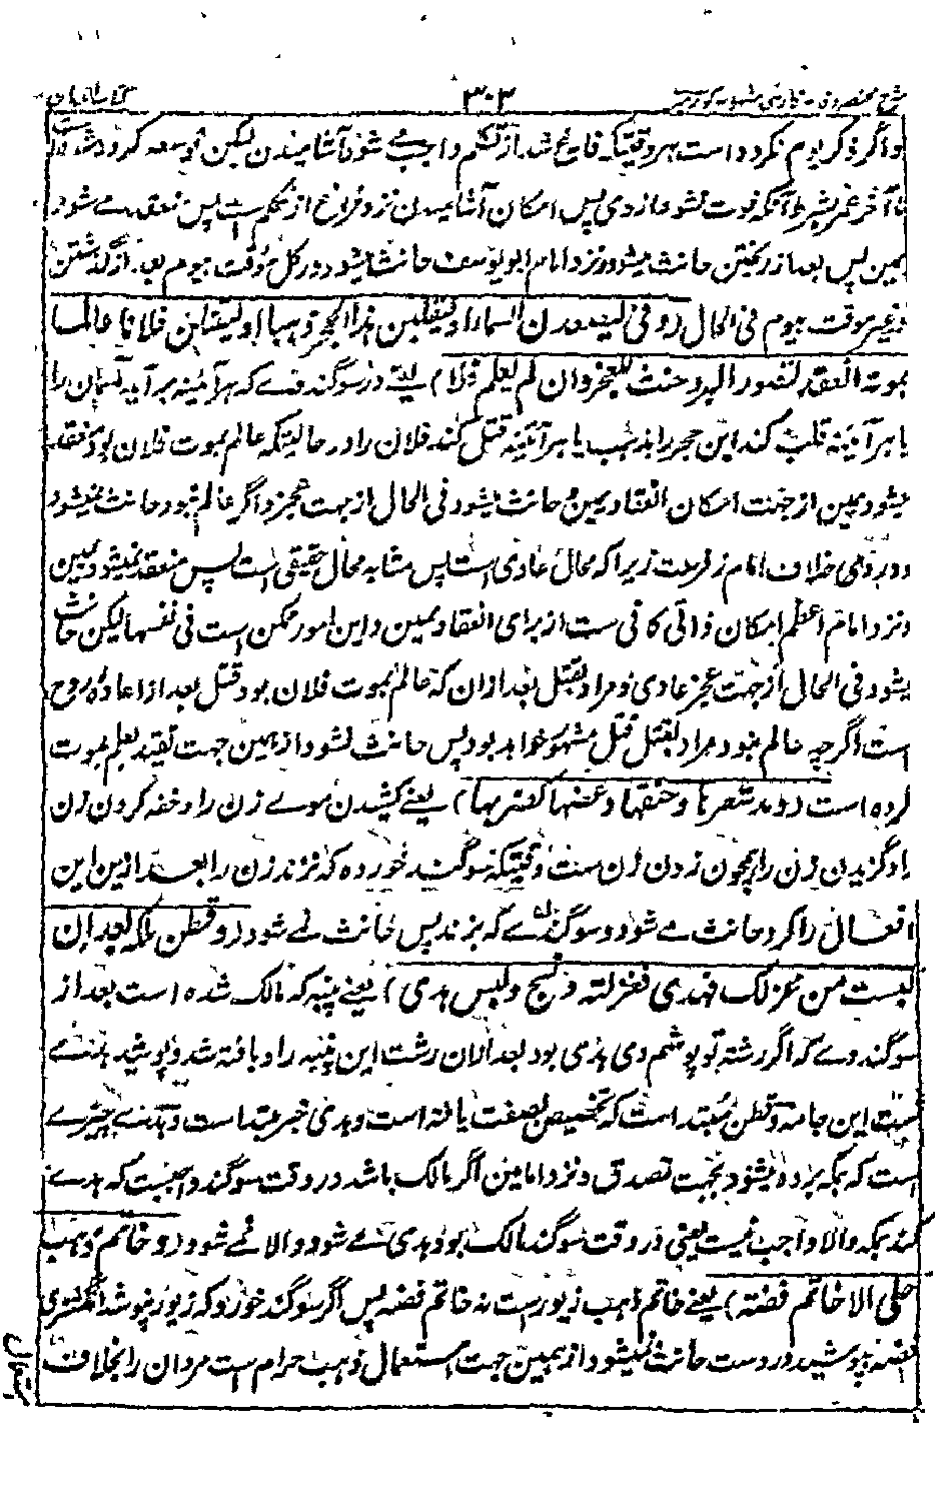 شرح مختصر وقایہ فارسی مشہور بہ کوردیہ ۳۰۳ کتاب الایمان
و اگر ذکر یوم نکرده است ہر وقتیکہ فارغ شد از تکلم واجب شود آشامیدن لیکن توسعہ کرده شده است
تا آخر عمر بشرط آنکہ فوت نشود از وی پس امکان آشامیدن نزد فراغ از تکلم است پس منعقد مے شود
یمین پس بعد از ریختن حانث میشود و نزد امام ابو یوسف حانث میشود در کل موقت بیوم بعد از گذشتن
و غیر موقت بیوم فی الحال (و فی لیصعدن السماء او لیقلبن ہذا الحجر ذہبا او لیقتلن فلانا عالما
بموتہ انعقد لتصور البر و حنث للعجز و ان لم یعلم فلا) یعنے در سوگند وے کہ ہر آئینہ بر آید آسمان را
یا ہر آئینہ قلب کند این حجر را بذہب یا ہر آئینہ قتل کند فلان را در حالیکہ عالم بموت فلان بود منعقد
میشود یمین از جہت امکان انعقاد یمین و حانث میشود فی الحال از جہت عجز و اگر عالم نبود حانث نمیشود
و دروی خلاف امام زفر ست زیرا کہ محال عادی است پس مشابہ محال حقیقی است پس منعقد نمیشود یمین
و نزد امام اعظم امکان ذاتی کافی ست از برای انعقاد یمین و این امور ممکن است فی نفسہا لیکن حانث
میشود فی الحال از جہت عجز عادی و مراد بقتل بعد ازان کہ عالم بموت فلان بود قتل بعد از اعادہ روح
است اگر چہ عالم نبود مراد بقتل قتل مشہور خواہد بود پس حانث نشود از ہمین جہت تقید بعلم بموت
کرده است (و مد شعرہا و خنقہا و عضہا کضربہا) یعنے کشیدن موے زن را و خفہ کردن زن
را و گزیدن زن را ہمچون زدن زن ست وقتیکہ سوگند خورده کہ نزند زن را بعد ازین این
افعال را کرد حانث مے شود و سوگند وے کہ بزند پس حانث نمے شود (و قطن ملکہ بعد ان
لبست من غزلک فہدی فغزلتہ و نسج و لبس ہدی) یعنے پنبہ کہ مالک شده است بعد از
سوگند وے کہ اگر رشتہ تو پوشم وی ہدی بود بعد ازان رشت این پنبہ را و بافتہ شد و پوشید ہدی
ست این جامہ و قطن مبتدا است کہ تخصیص بصفت یافتہ است و ہدی خبر مبتدا است و ہدی چیزے
است کہ بمکہ برده میشود بجہت تصدق و نزد امامین اگر مالک باشد در وقت سوگند واجبست کہ ہدی
کند بمکہ والا واجب نیست یعنی در وقت سوگند مالک بود ہدی مے شود والا نمے شود (و خاتم ذہب
حلی الا خاتم فضة) یعنے خاتم ذہب زیور ست نہ خاتم فضہ پس اگر سوگند خورد کہ زیور نپوشد انگشتری
فضہ پوشید در دست حانث نمیشود از ہمین جہت استعمال ذہب حرام است مردان را بخلاف
استعمال